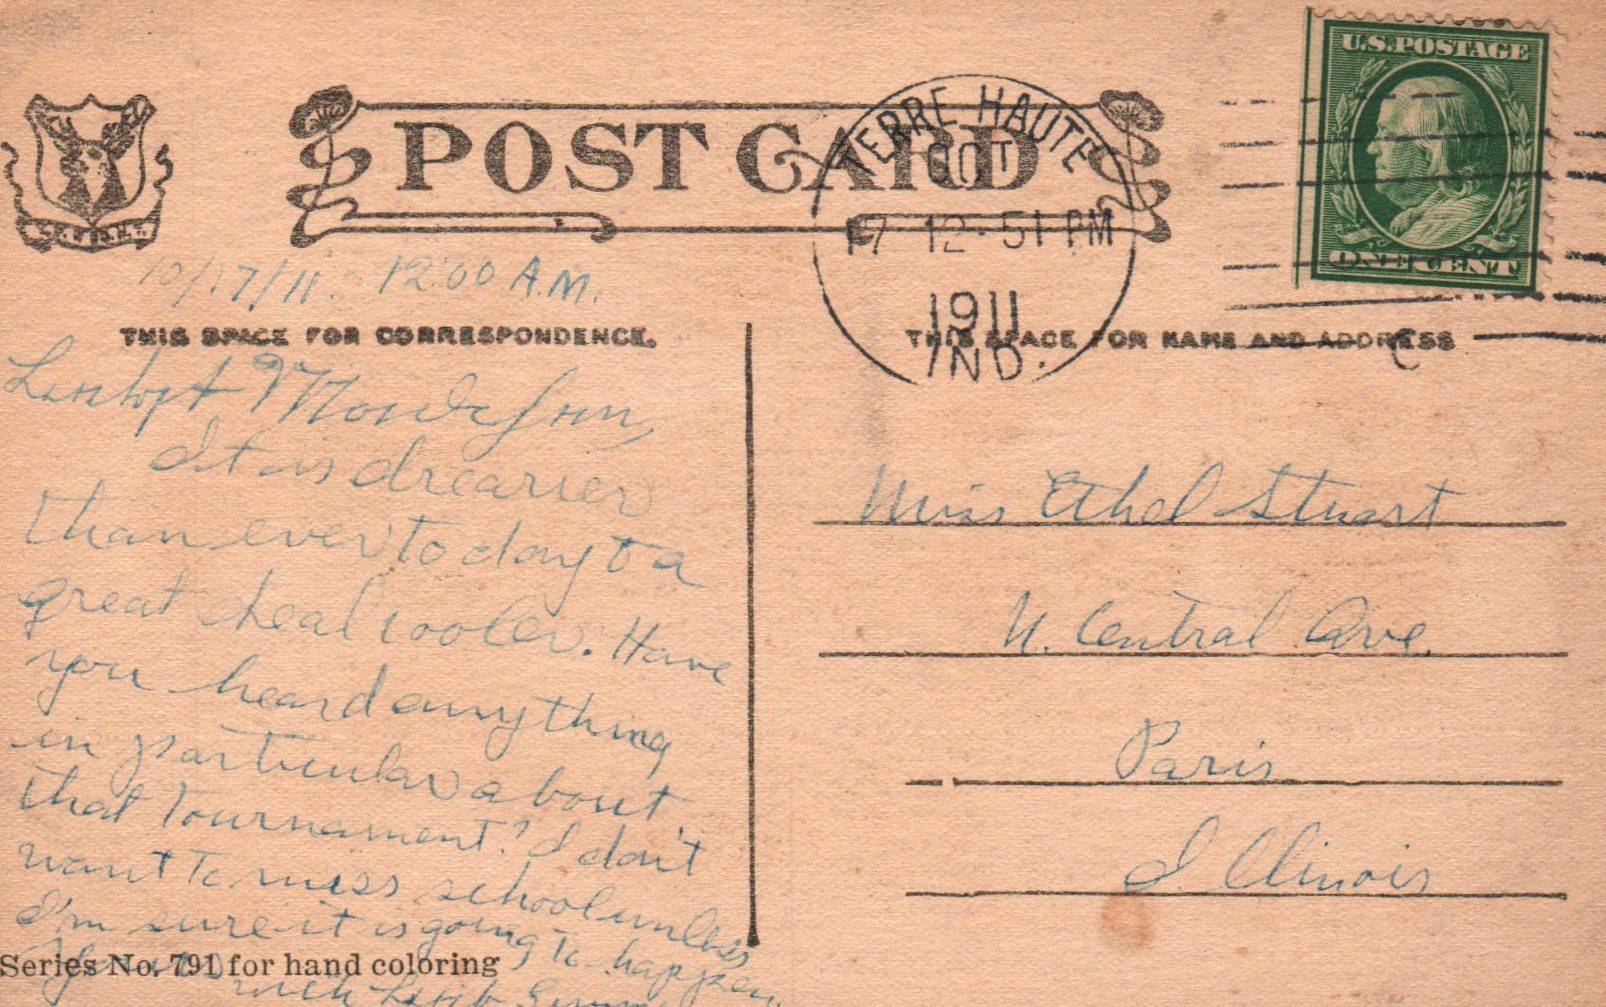 U.S.POSTAGE
ONE CENT
POST CARD
TERRE HAUTE
OCT
17 12-51 PM
1911
IND.
10/17/11. 12:00 A.M.
THIS SPACE FOR CORRESPONDENCE.
THIS SPACE FOR NAME AND ADDRESS
C
It is drearier
than ever to day & a
great deal cooler. Have
you heard anything
in particular about
that Tournament? I don't
want to miss school unless
I'm sure it is going to happen
much
Series No. 791 for hand coloring
Miss Ethel Stuart
N. Central Ave.
Paris
Illinois